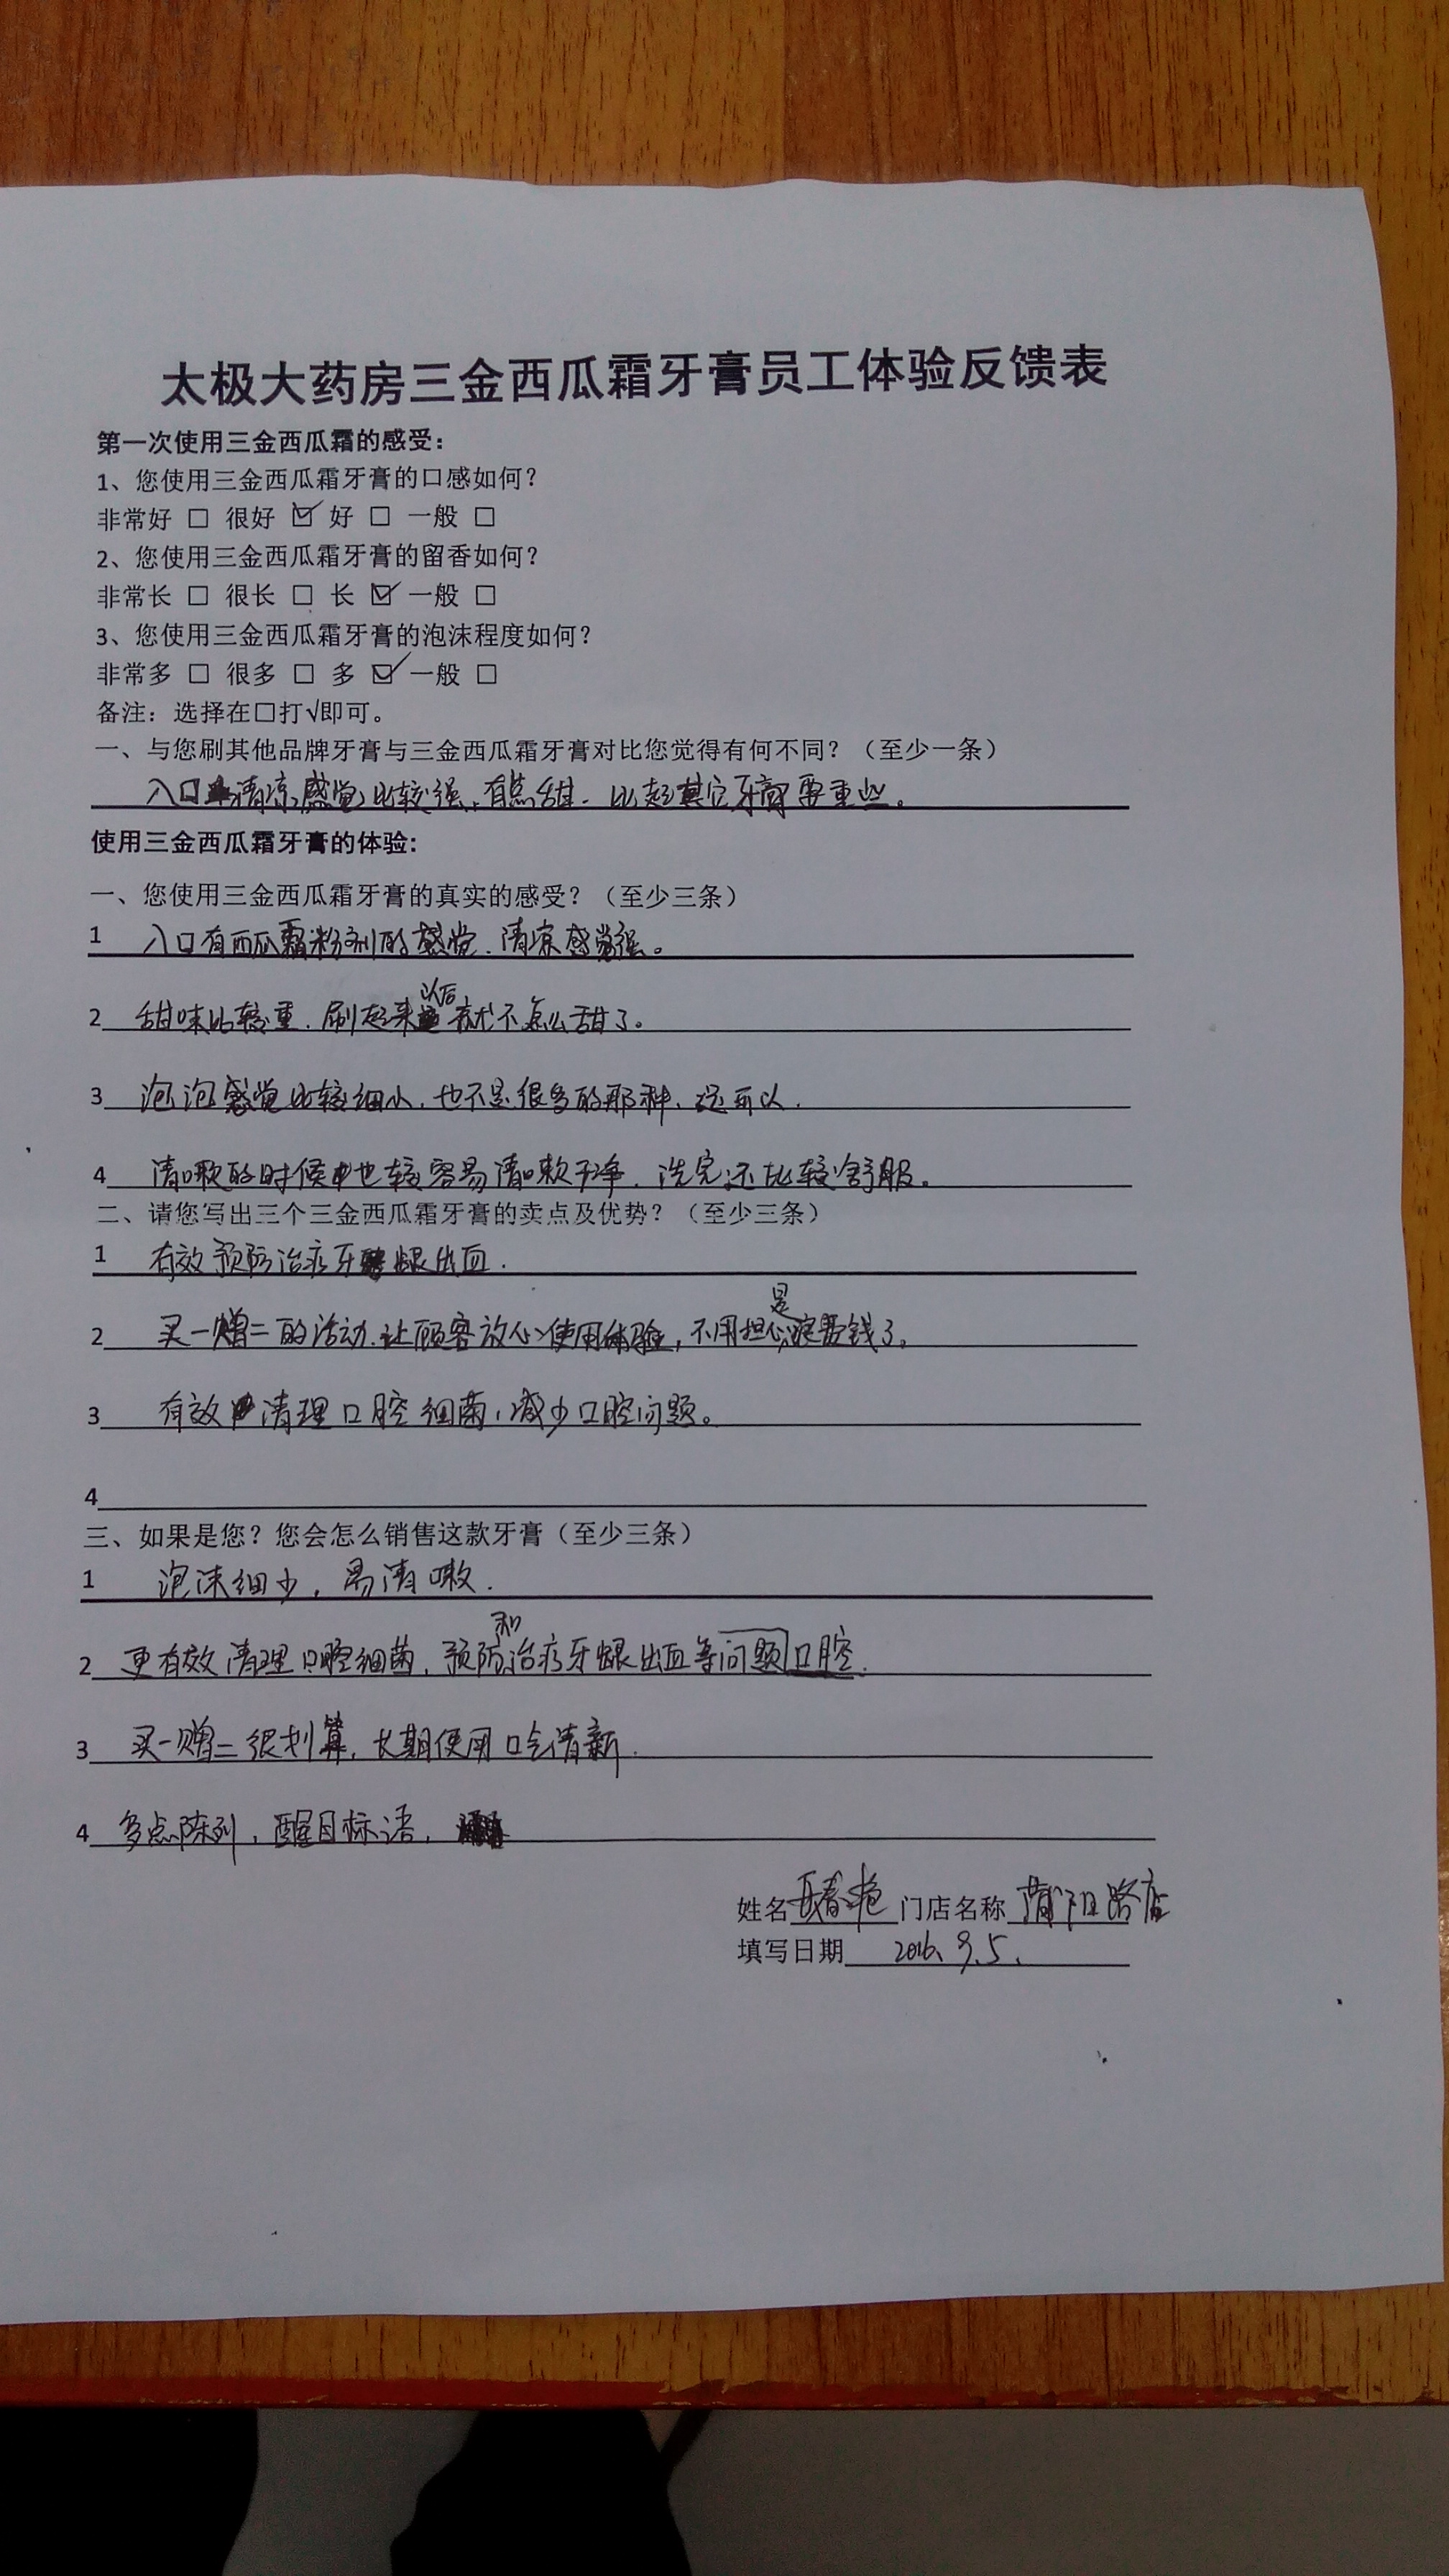 太极大药房三金西瓜霜牙膏员工体验反馈表
第一次使用三金西瓜霜的感受：
1、您使用三金西瓜霜牙膏的口感如何？
非常好 □ 很好 ☑ 好 □ 一般 □
2、您使用三金西瓜霜牙膏的留香如何？
非常长 □ 很长 □ 长 ☑ 一般 □
3、您使用三金西瓜霜牙膏的泡沫程度如何？
非常多 □ 很多 □ 多 ☑ 一般 □
备注：选择在□打√即可。
一、与您刷其他品牌牙膏与三金西瓜霜牙膏对比您觉得有何不同？（至少一条）
入口清凉感觉比较强，有点甜. 比起其它牙膏要重些。
使用三金西瓜霜牙膏的体验：
一、您使用三金西瓜霜牙膏的真实的感受？（至少三条）
1 入口有西瓜霜粉剂的感觉. 清凉感觉强。
2 甜味比较重. 刷起来以后就不怎么甜了。
3 泡泡感觉比较细小, 也不是很多的那种, 还可以.
4 清嗽的时候也较容易清嗽干净. 洗完还比较舒服。
二、请您写出三个三金西瓜霜牙膏的卖点及优势？（至少三条）
1 有效预防治疗牙龈出血.
2 买一赠二的活动. 让顾客放心使用体验, 不用担心是浪费钱了。
3 有效清理口腔细菌, 减少口腔问题。
4
三、如果是您？您会怎么销售这款牙膏（至少三条）
1 泡沫细少, 易清嗽.
2 更有效清理口腔细菌, 预防和治疗牙龈出血等问题口腔.
3 买一赠二很划算, 长期使用口气清新.
4 多点陈列, 醒目标语,
姓名 春艳 门店名称 蒲阳路店
填写日期 2016. 9. 5.